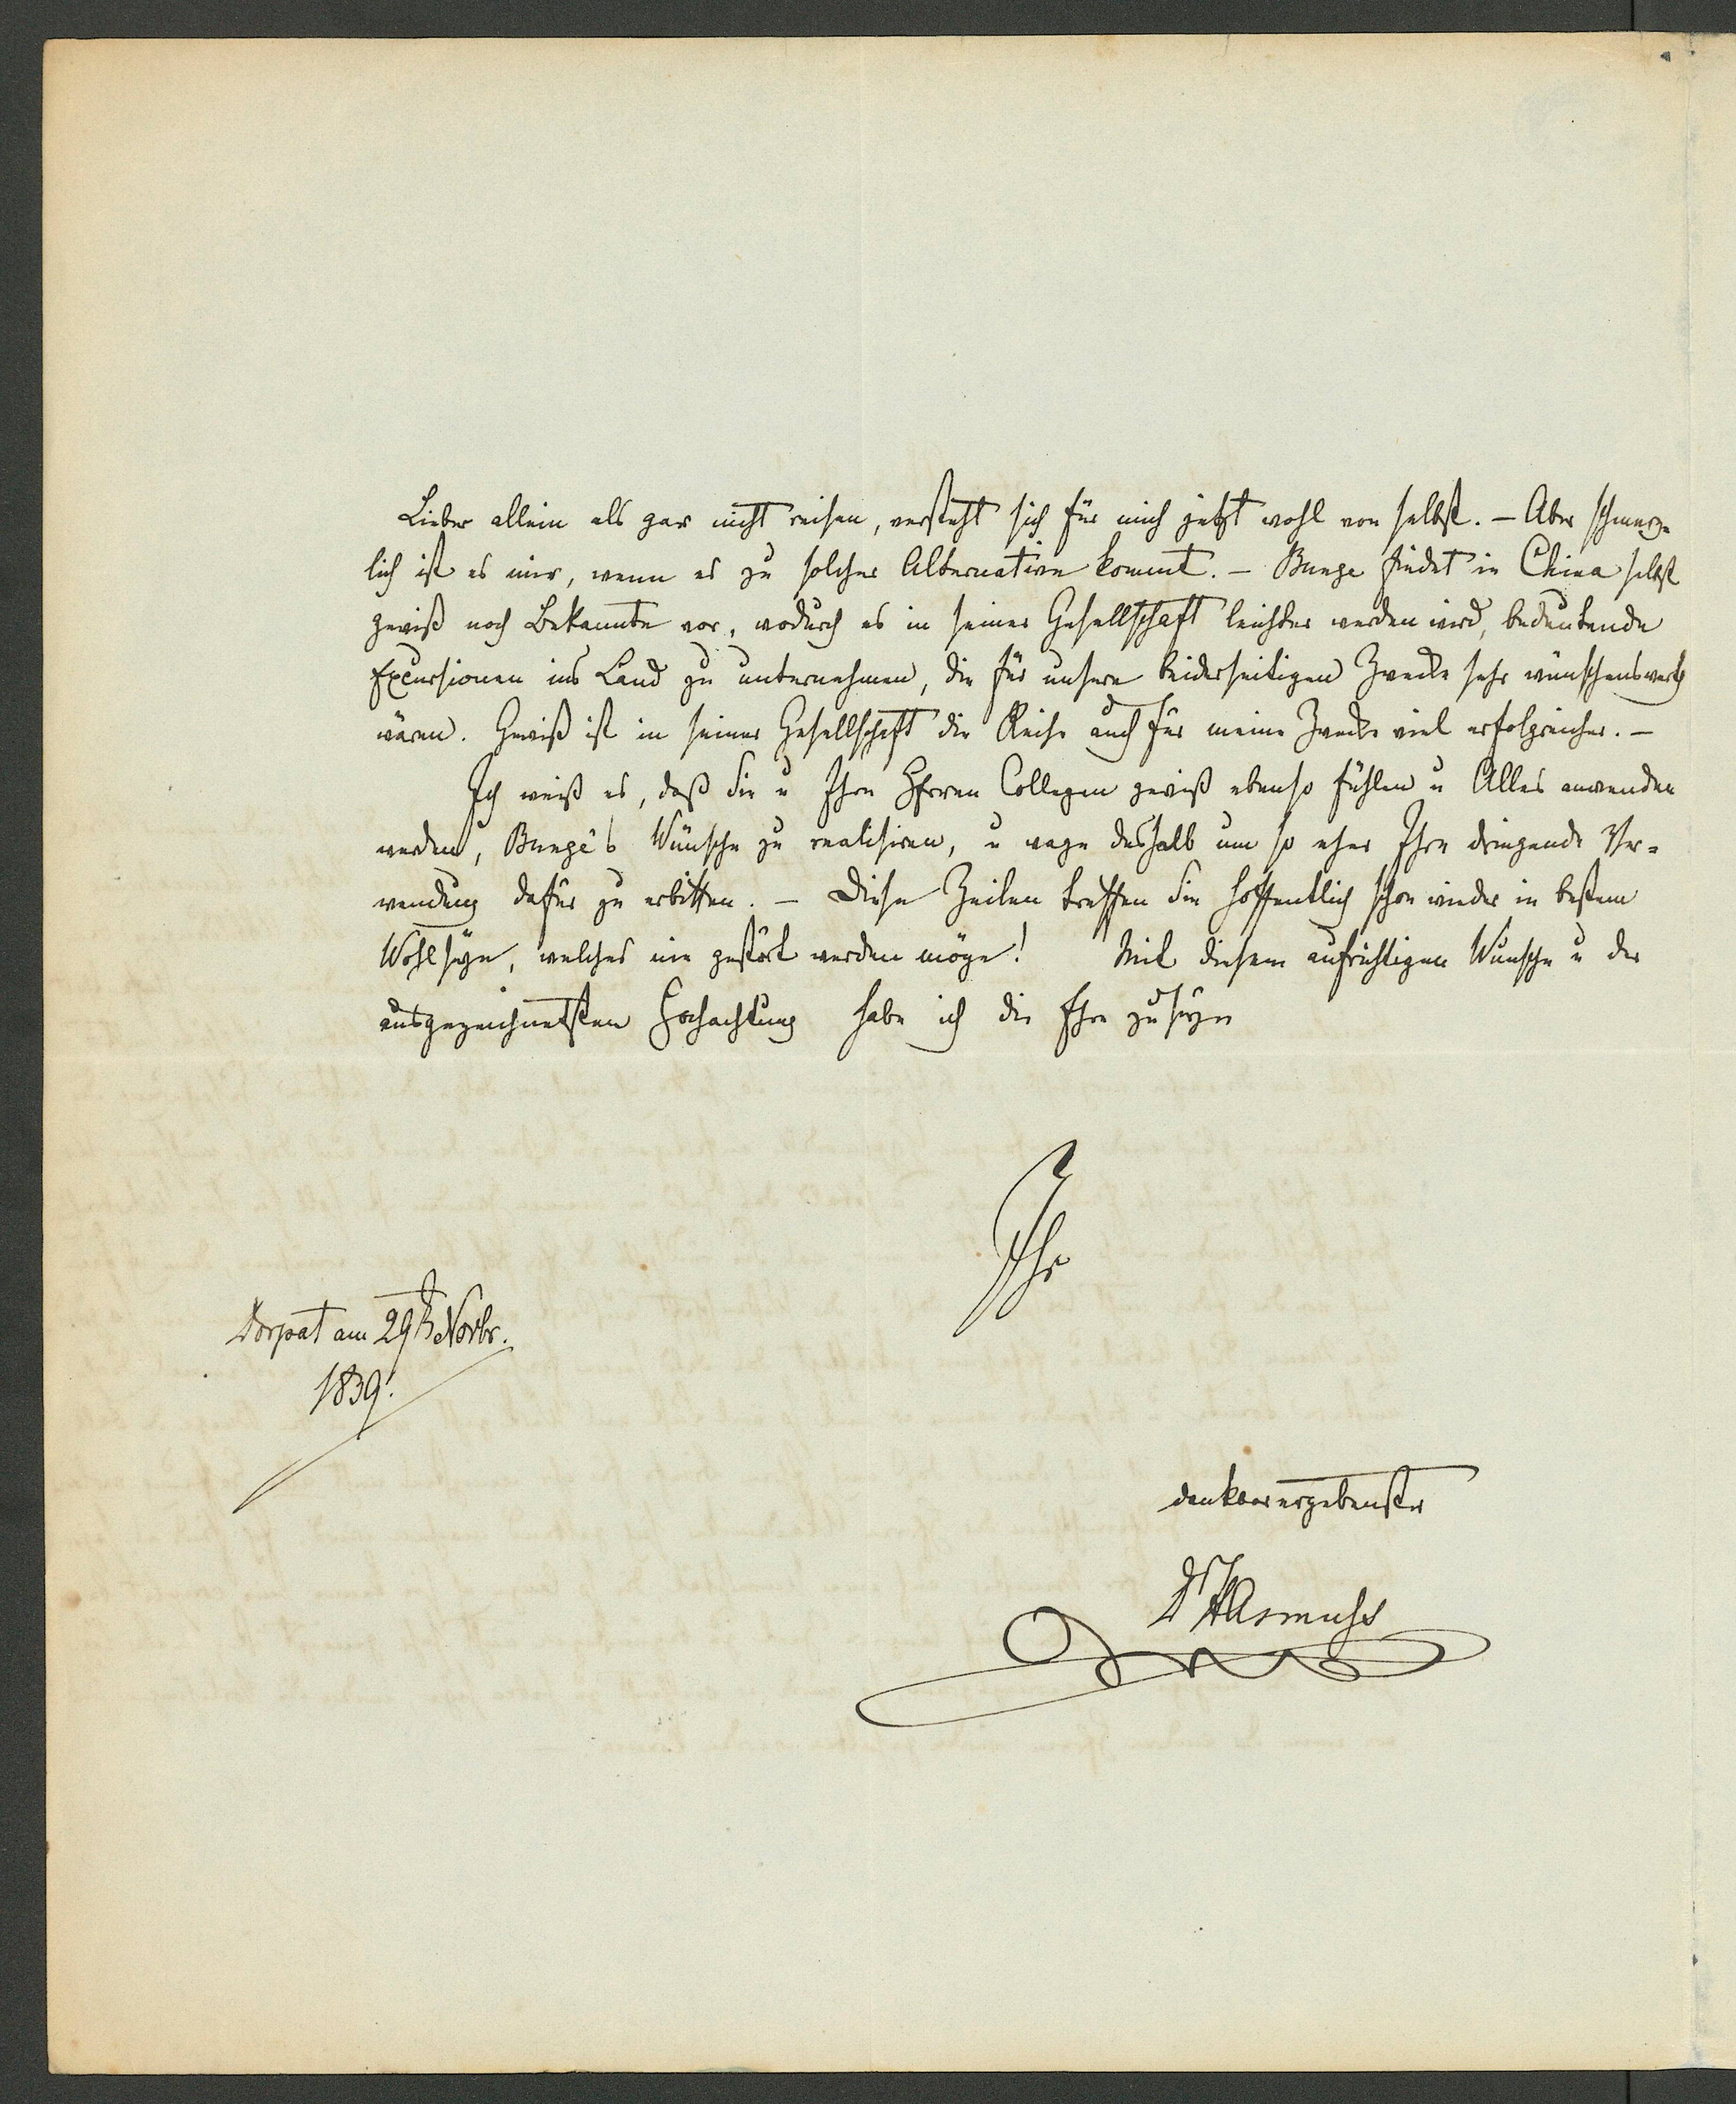 Lieber allein als gar nicht reisen, versteht sich für mich jetzt wohl von selbst. – Aber schmerz-
lich ist es mir, wenn es zu solcher Alternative kommt. – Bunge findet in China selbst
gewiß noch Bekannte vor, wodurch es in seiner Gesellschaft leichter werden wird, bedeutende
Excursionen ins Land zu unternehmen, die für unsere beiderseitigen Zwecke sehr wünschenswerth
wären. Gewiß ist in seiner Gesellschaft die Reise auch für meine Zwecke viel erfolgreicher. –
Ich weiß es, daß Sie u Ihre Herren Collegen gewiß ebenso fühlen u Alles anwenden
werden, Bunge's Wünsche zu realisiren, u wage deshalb um so eher Ihre dringende Ver-
wendung dafür zu erbitten. – Diese Zeilen treffen Sie hoffentlich schon wieder in bestem
Wohlseyn, welches nie gestört werden möge! Mit diesem aufrichtigen Wunsche u der
ausgezeichnetsten Hochachtung habe ich die Ehre zu seyn
Ihr
Dorpat am 29t Novbr.
1839.
dankbar ergebenster
Dr HAsmuss